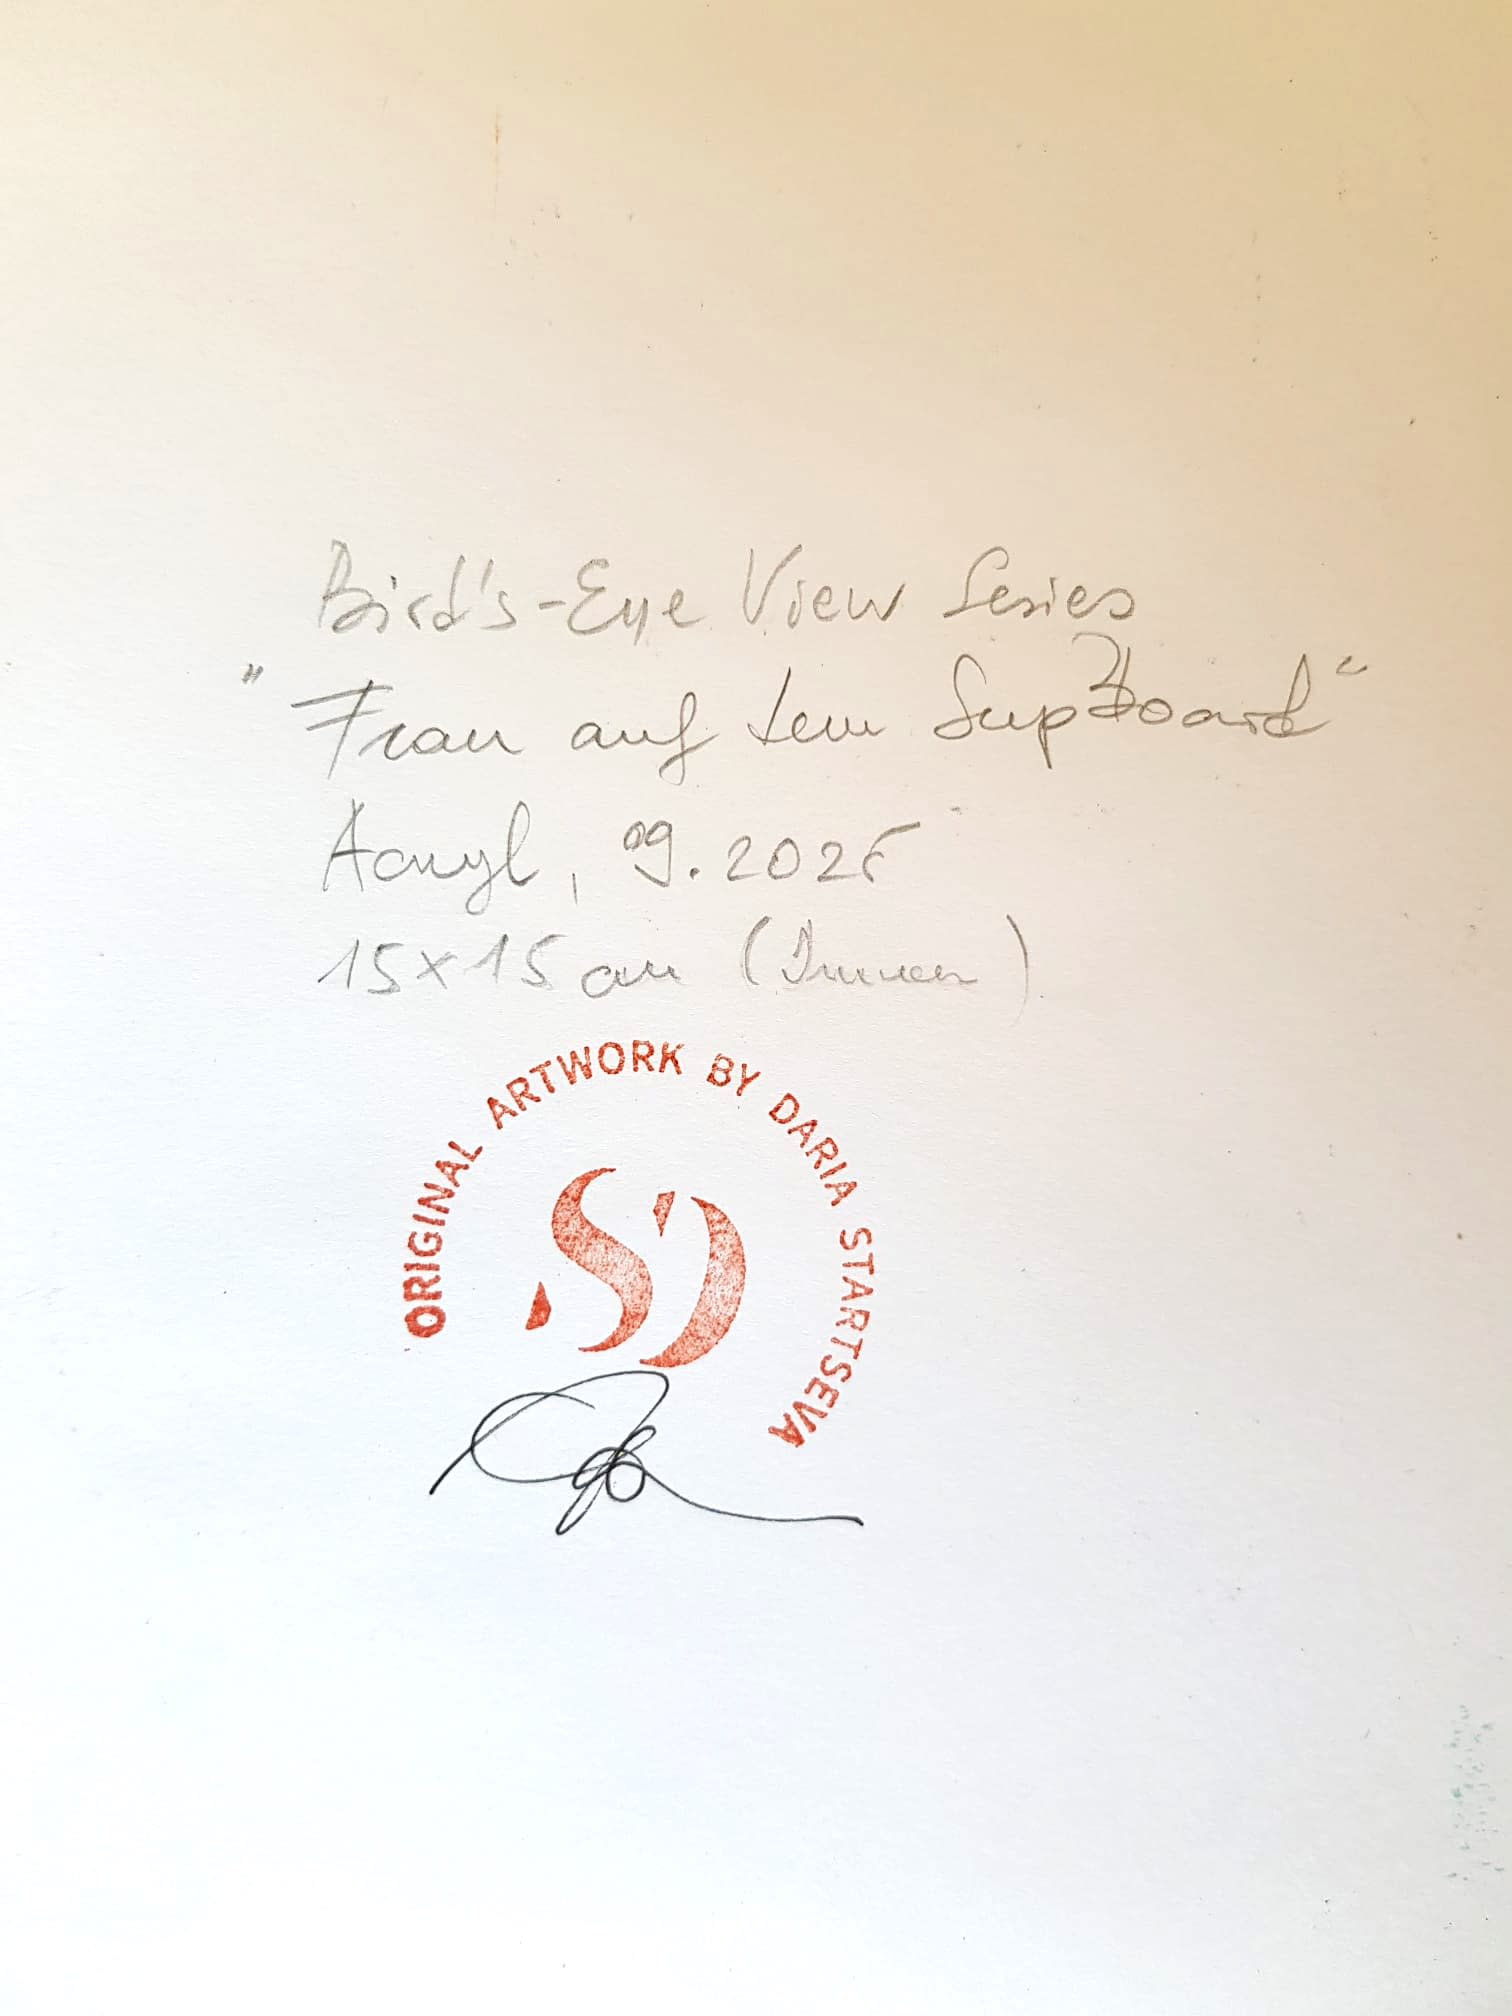 Bird's-Eye View Series
"Frau auf dem SupBoard"
Acryl, 09.2025
15x15 cm (Innen)
ORIGINAL ARTWORK BY DARIA STARTSEVA
SD